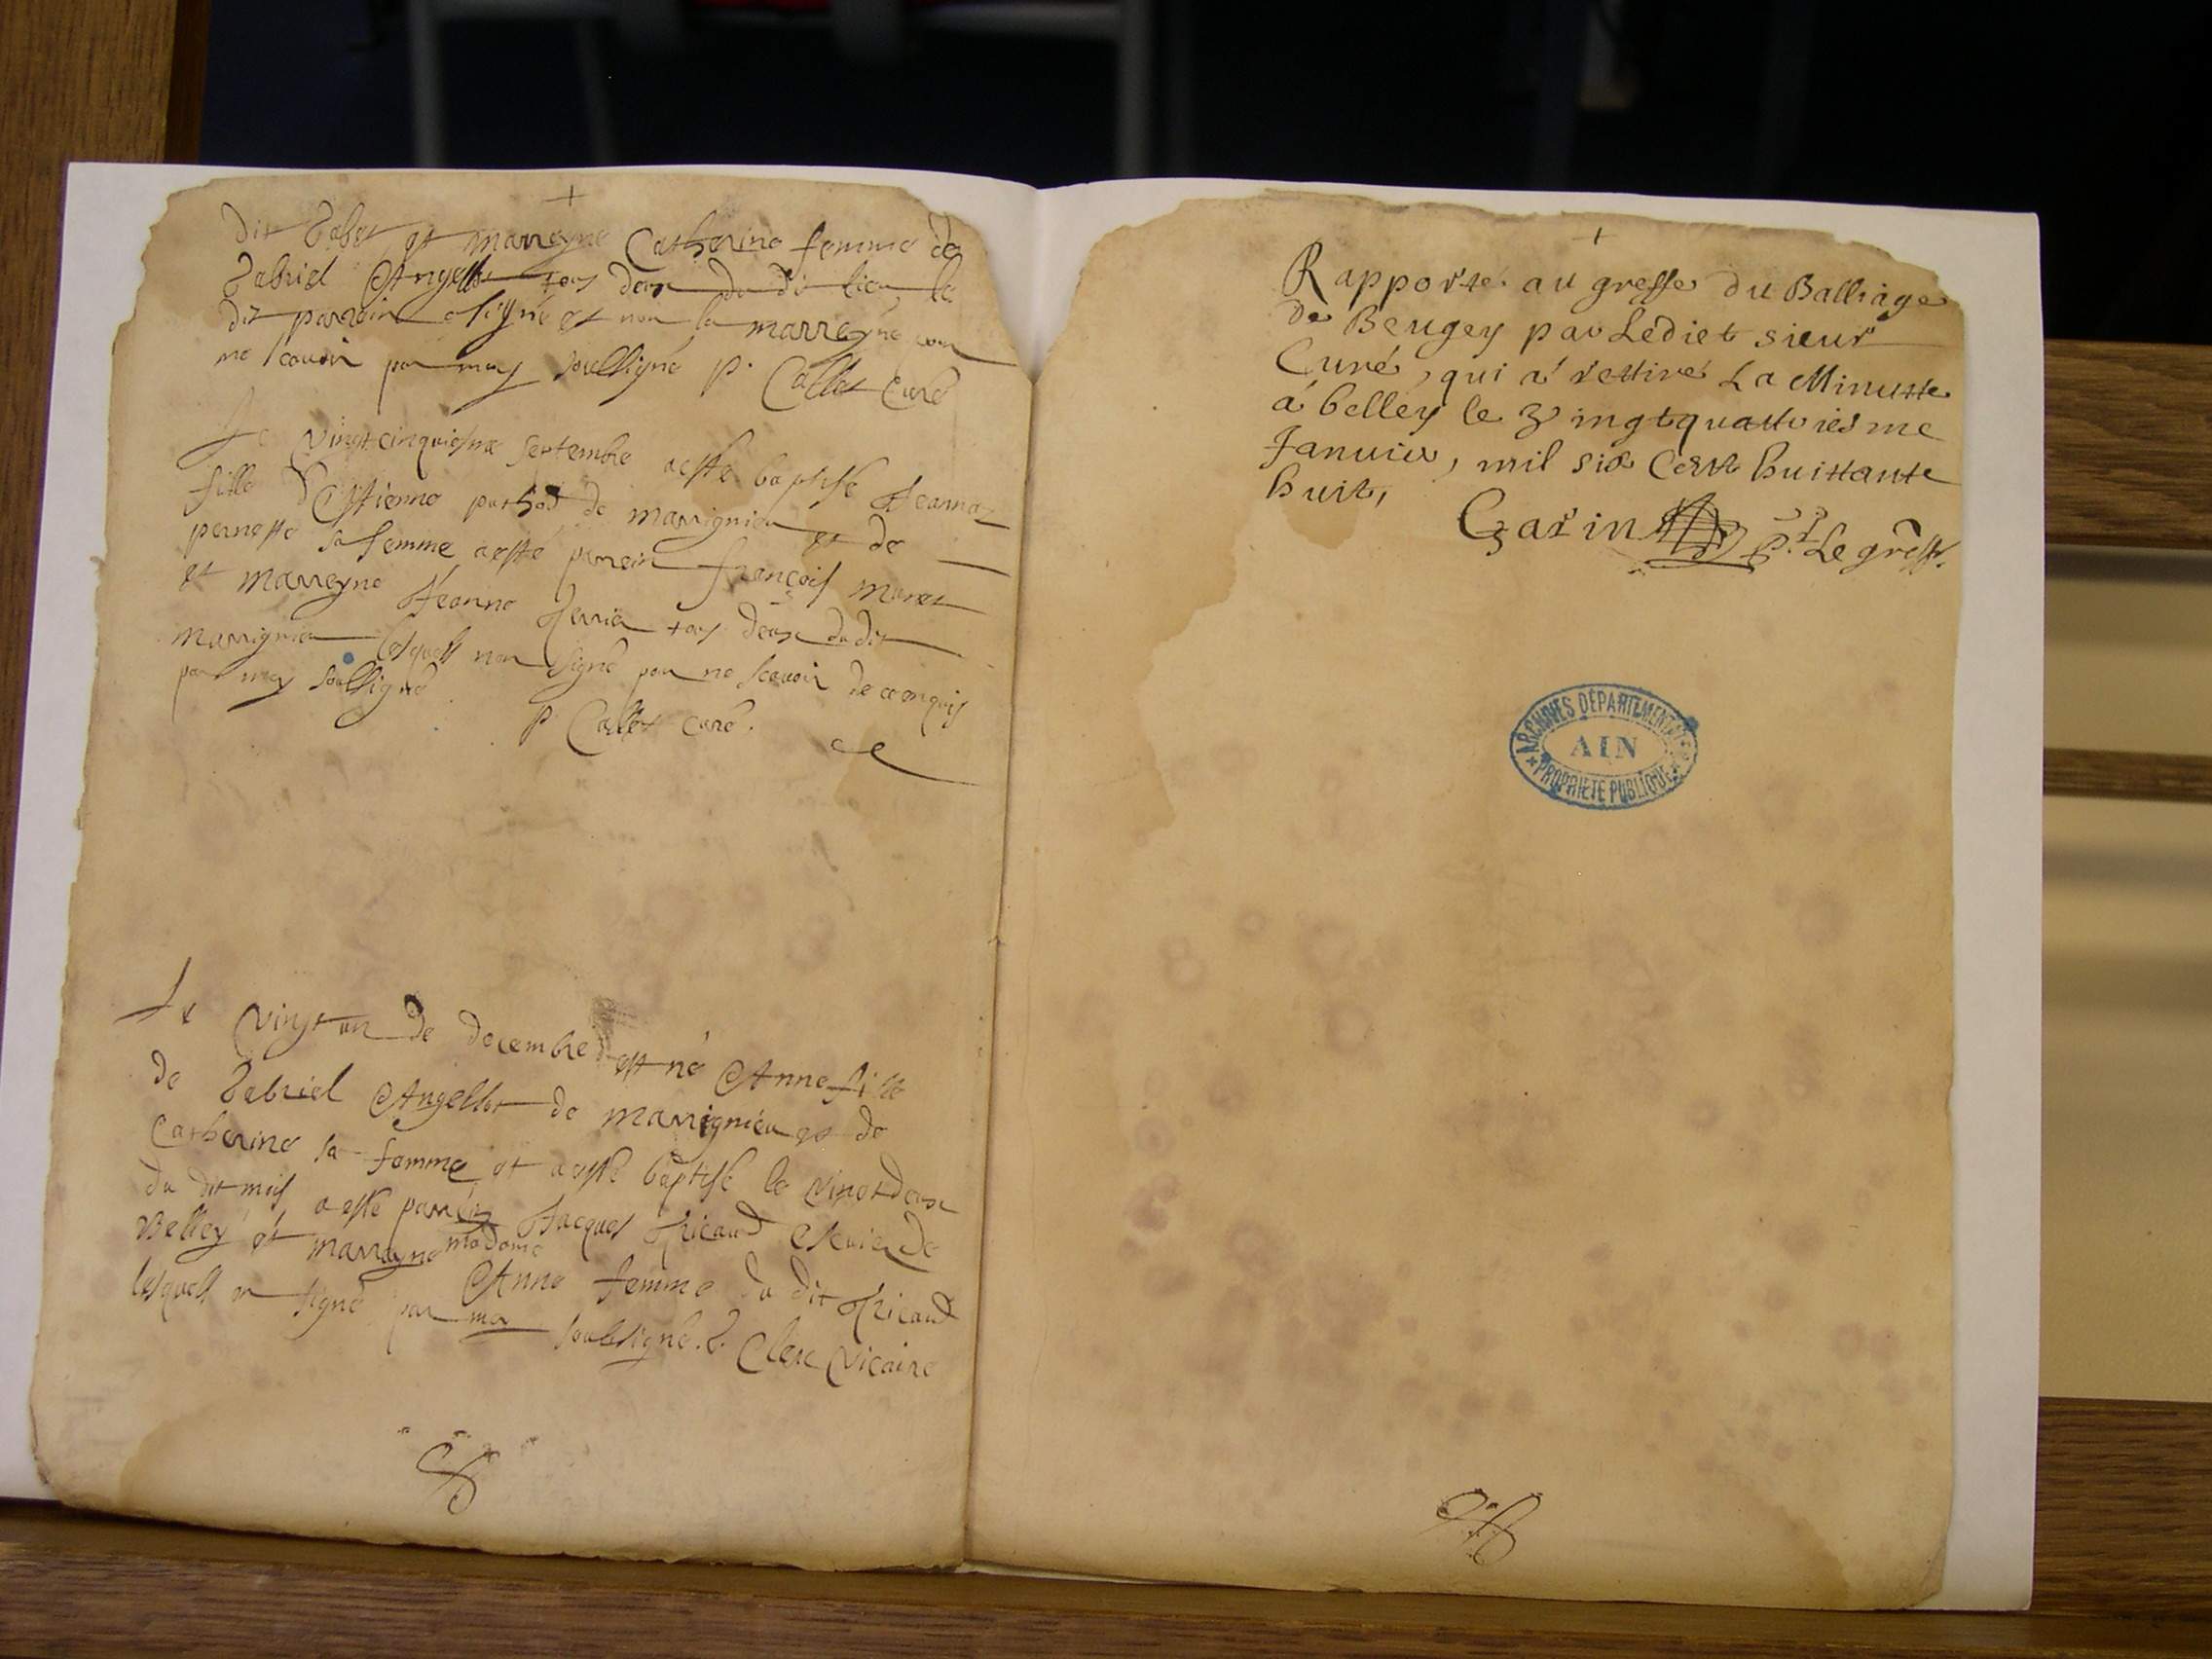 dit et marreyne Catherine femme de
Gabriel Angellot tous deux du dit lieu le
dit parrein a signé et non la marreyne pour
ne scavoir par moy soussigné P. Callet Curé
Le vingtcinquiesme septembre a esté baptisé Jeanne
fille d'Estienne de marrignieu et de
pernette sa femme a esté parrein françois
et marreyne Jeanne tous deux du dit
marrignieu lesquels non signé pour ne scavoir de ce enquis
par moy soussigné
P Callet curé.
Le vingt un de decembre est né Anne fille
de Gabriel Angellot de marrignieu et de
Catherine sa femme et a esté baptisé le vingtdeux
du dit mois a esté parrein Jacques de
Belley et marreyne madame
Anne femme du dit
lesquels on signé par moy soubsigné. Clerc vicaire
Rapporté au greffe du Balliage
de Beugey par Lediet sieur
Curé, qui a rettiré La Minutte
a belley le vingtquattriesme
Januier, mil six Cent huittante
huit,
Garin Le greff.
ARCHIVES DÉPARTEMENTALES
AIN
PROPRIETE PUBLIQUE